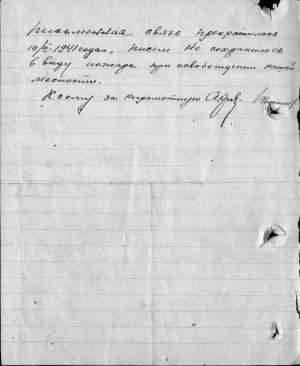 письменная связь прекратилась
10/VI-1941 года, писем не сохранилось
в виду пожара при освобождении нашей
местности.
К сему за неграмотную